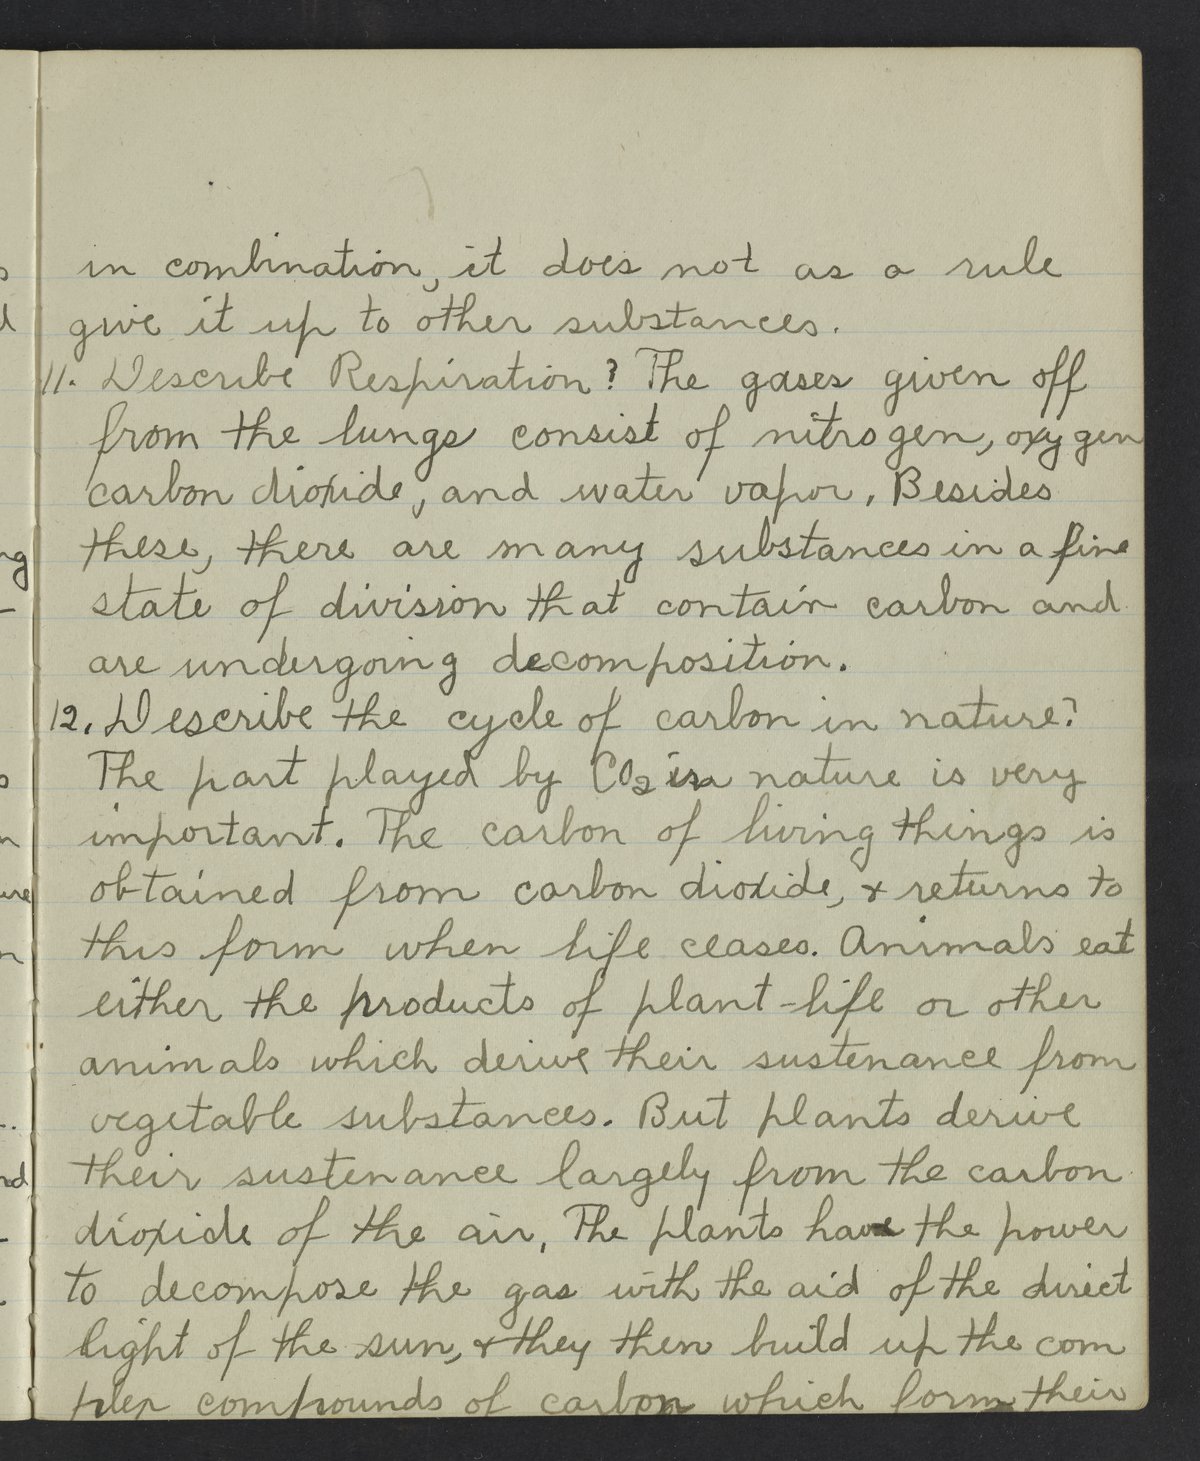 in combination, it does not as a rule
give it up to other substances.
11. Describe Respiration? The gases given off
from the lungs consist of nitrogen, oxygen
carbon dioxide, and water vapor. Besides
these, there are many substances in a fine
state of division that contain carbon and
are undergoing decomposition.
12. Describe the cycle of carbon in nature?
The part played by CO2 in nature is very
important. The carbon of living things is
obtained from carbon dioxide, & returns to
this form when life ceases. Animals eat
either the products of plant-life or other
animals which derive their sustenance from
vegetable substances. But plants derive
their sustenance largely from the carbon
dioxide of the air. The plants have the power
to decompose the gas with the aid of the direct
light of the sun, & they then build up the com
plex compounds of carbon which form their